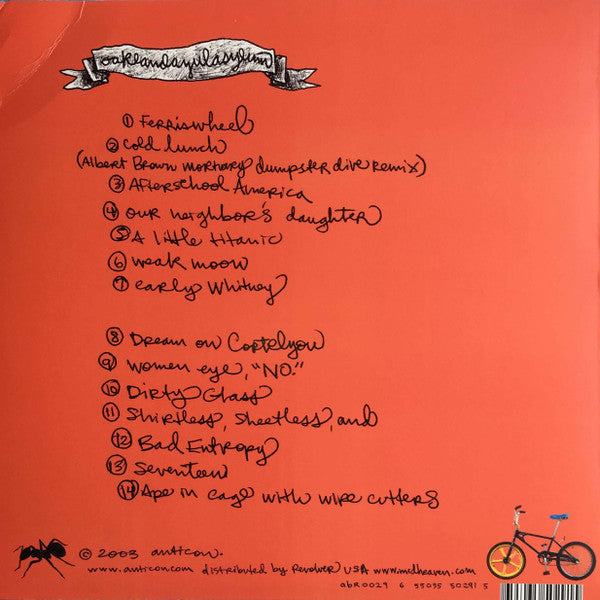 oaklandazulasylum
① Ferriswheel
② Cold lunch
(Albert Brown mortuary dumpster dive remix)
③ Afterschool America
④ our neighbor's daughter
⑤ A little titanic
⑥ weak moon
⑦ early Whitney
⑧ Dream on Cortelyou
⑨ women eye, "NO."
⑩ Dirty Glass
⑪ Shirtless, Sheetless, and
⑫ Bad Entropy
⑬ Seventeen
⑭ Ape in cage with wire cutters
© 2003 anticon.
www.anticon.com distributed by Revolver USA www.midheaven.com
abR0029 6 55035 50291 5